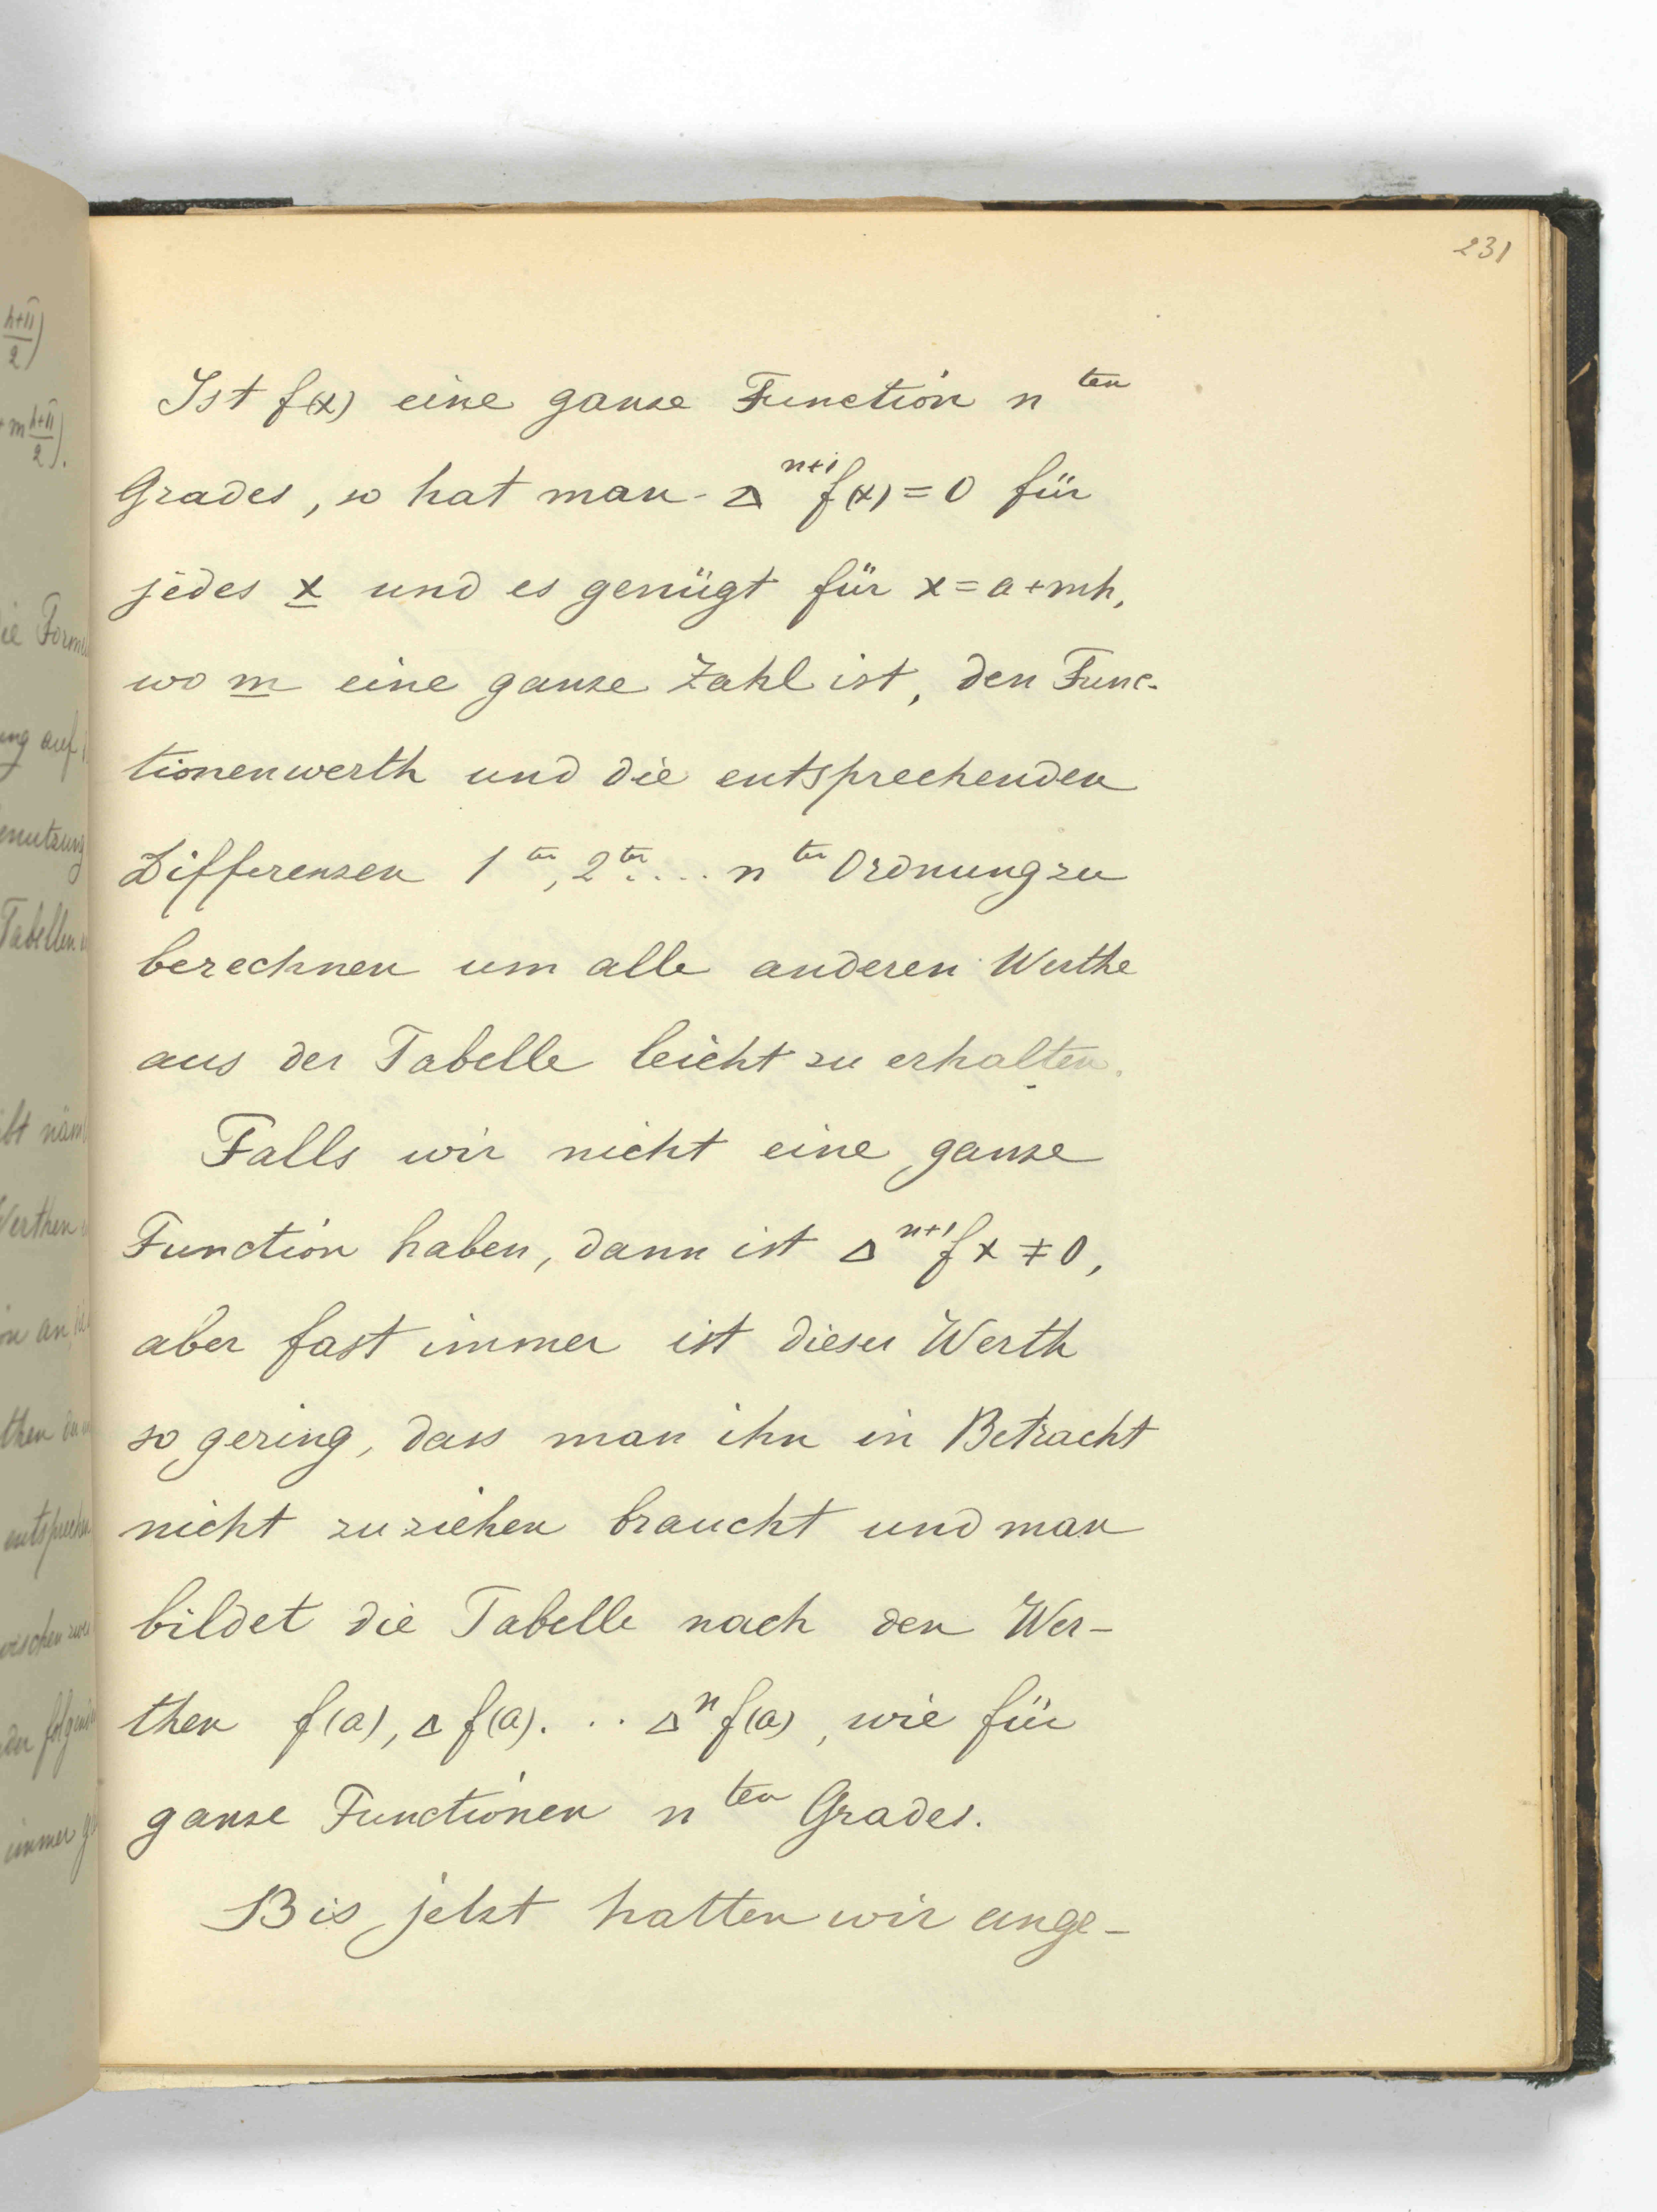 231
Ist f(x) eine ganze Function n^ten
Grades, so hat man Δ^{n+1} f(x) = 0 für
jedes x und es genügt für x = a + mh,
wo m eine ganze Zahl ist, den Func-
tionenwerth und die entsprechenden
Differenzen 1^ter, 2^ter .... n^ter Ordnung zu
berechnen um alle anderen Werthe
aus der Tabelle leicht zu erhalten.
Falls wir nicht eine ganze
Function haben, dann ist Δ^{n+1} f x ≠ 0,
aber fast immer ist dieser Werth
so gering, dass man ihn in Betracht
nicht zu ziehen braucht und man
bildet die Tabelle nach den Wer-
then f(a), Δ f(a) . .. Δ^n f(a), wie für
ganze Functionen n^ten Grades.
Bis jetzt hatten wir ange-